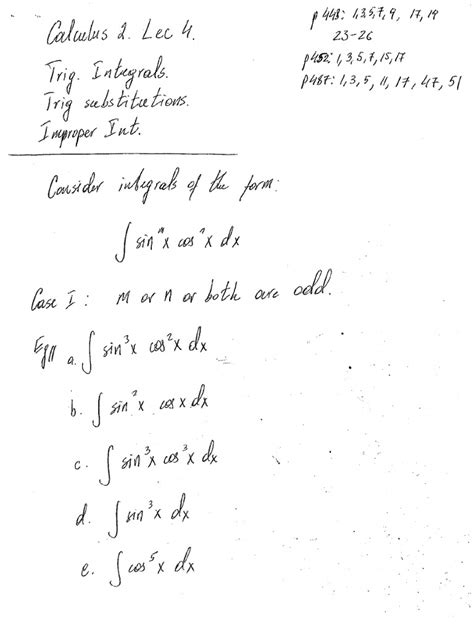 Calculus 2. Lec 4.
Trig. Integrals.
Trig substitutions.
Improper Int.
p448: 1,3,5,7,9, 17, 19
23-26
p452: 1, 3, 5, 7, 15, 17
p487: 1, 3, 5, 11, 17, 47, 51
Consider integrals of the form:
∫ sinᵐx cosⁿx dx
Case I : m or n or both are odd.
Eg1 a. ∫ sin³x cos²x dx
b. ∫ sin²x cosx dx
c. ∫ sin³x cos³x dx
d. ∫ sin³x dx
e. ∫ cos⁵x dx